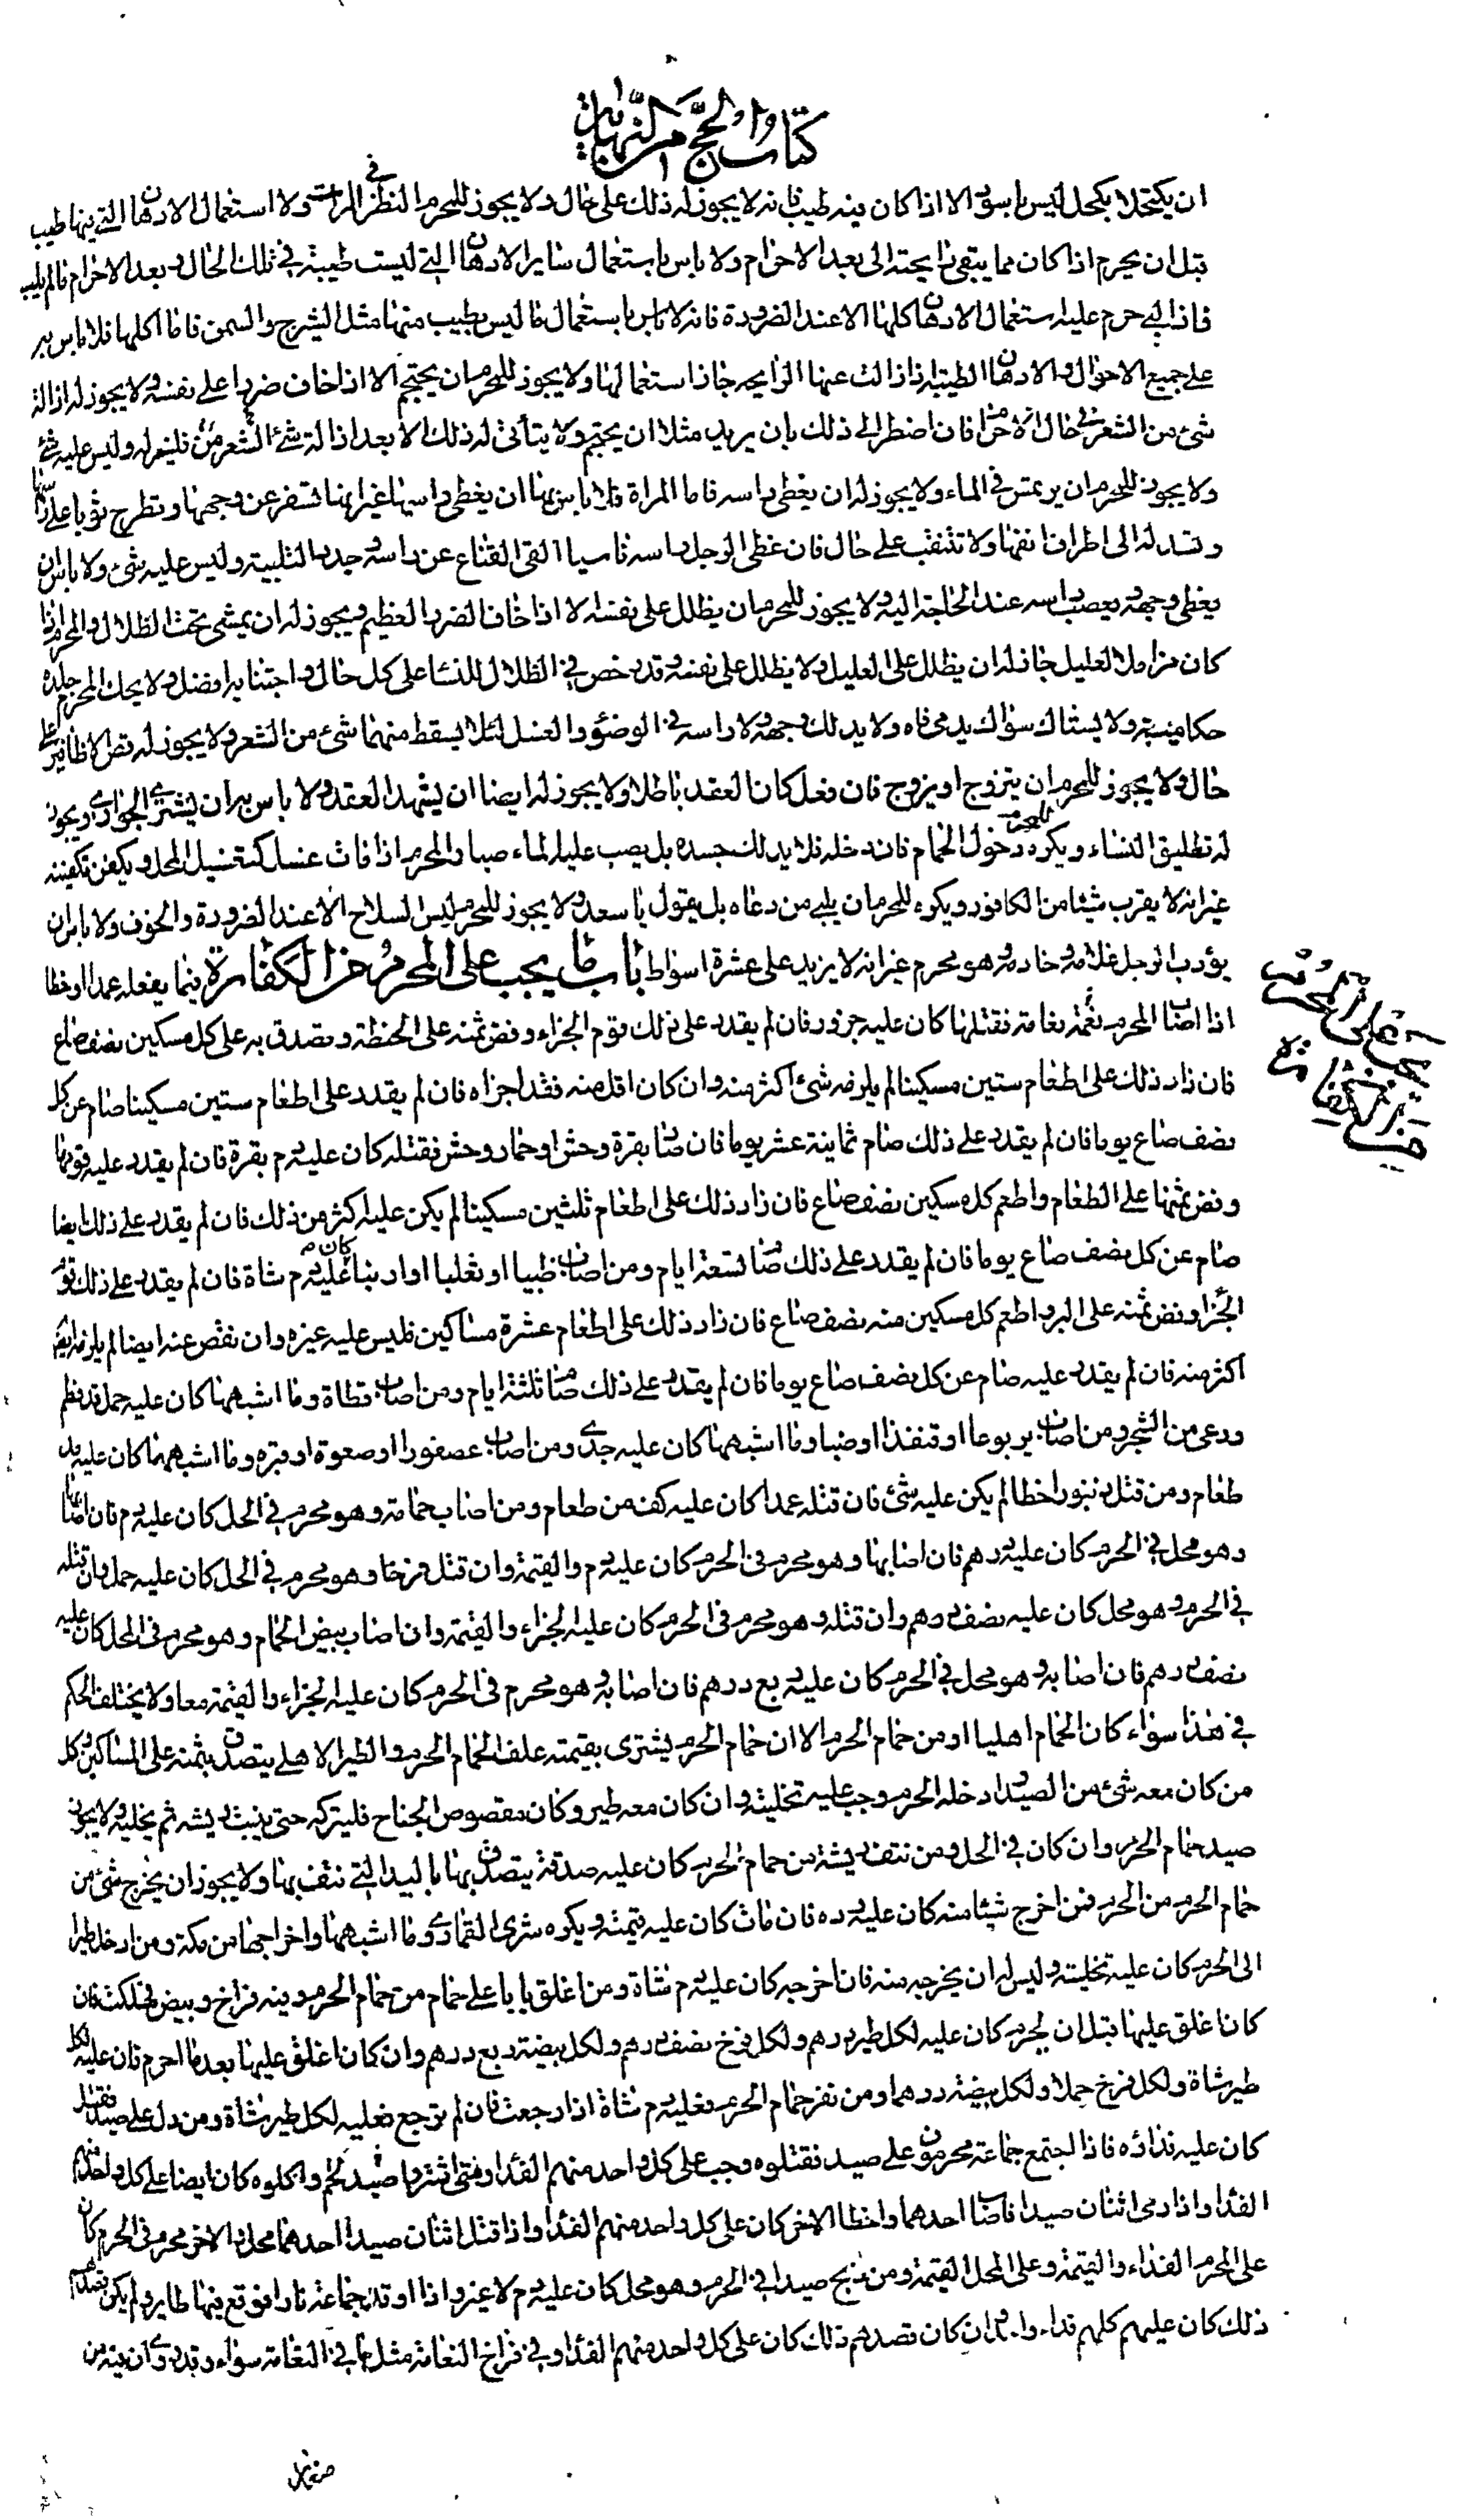 كتاب الحج من النهاية
ان يكتحلا بكحل ليس باسود الا اذا كان فيه طيب فانه لا يجوز له ذلك على حال ولا يجوز للمحرم النظر في المرات ولا استعمال الادهان التي فيها طيب
قبل ان يحرم اذا كان مما يبقى رايحته الى بعد الاحرام ولا باس باستعمال ساير الادهان التي ليست طيبة في تلك الحال وبعد الاحرام ما لم يلب
فاذا لبي حرم عليه استعمال الادهان كلها الا عند الضرورة فانه لا باس باستعمال ما ليس بطيب منها مثل الشيرج والسمن فاما اكلها فلا باس به
على جميع الاحوال والادهان الطيبة اذا زالت عنها الرايحه جاز استعمالها ولا يجوز للمحرم ان يحتجم الا اذا خاف ضررا على نفسه ولا يجوز له ازالة
شئ من الشعر في حال الاحرام فان اضطر الى ذلك بان يريد مثلا ان يحتجم ولا يتأتى له ذلك الا بعد ازالة شئ من الشعر فليزله وليس عليه شئ
ولا يجوز للمحرم ان يرتمس في الماء ولا يجوز له ان يغطى راسه فاما المراة فلا باس بها ان يغطى راسها غير انها تسفر عن وجهها وتطرح ثوبا على راسها
وتسدله الى اطراف انفها ولا تتنقب على حال فان غطى الرجل راسه ناسيا القى القناع عن راسه وجدد التلبية وليس عليه شئ ولا باس ان
يغطى وجهه ويعصب راسه عند الحاجة اليه ولا يجوز للمحرم ان يظلل على نفسه الا اذا خاف الضرر العظيم ويجوز له ان يمشى تحت الظلال والمحرم اذا
كان مزامل العليل جاز له ان يظلل على العليل ولا يظلل على نفسه وقد رخص في الظلال للنساء على كل حال واجتنابه افضل ولا يحك المحرم جلده
حكا يدميه ولا يستاك سواكا يدمى فاه ولا يدلك وجهه ولا راسه في الوضوء والغسل لئلا يسقط منهما شئ من الشعر ولا يجوز له قص الاظافير على
حال ولا يجوز للمحرم ان يتزوج او يزوج فان فعل كان العقد باطلا ولا يجوز له ايضا ان يشهد العقد ولا باس به ان يشترى الجوارى ويجوز
له تطليق النساء ويكره للمحرم دخول الحمام فان دخله فلا يدلك جسده بل يصب عليه الماء صبا والمحرم اذا مات غسل كتغسيل المحل ويكفن تكفينه
غير انه لا يقرب شيئا من الكافور ويكره للمحرم ان يلبي من دعاه بل يقول يا سعد ولا يجوز للمحرم لبس السلاح الا عند الضرورة والخوف ولا باس ان
يؤدب الرجل غلامه وخادمه وهو محرم غير انه لا يزيد على عشرة اسواط باب ما يجب على المحرم من الكفارة فيما يفعله عمدا او خطا
اذا اصاب المحرم نعامة فقتلها كان عليه جزور فان لم يقدر على ذلك قوم الجزاء وفض ثمنه على الحنطة وتصدق به على كل مسكين نصف صاع
فان زاد ذلك على اطعام ستين مسكينا لم يلزمه شئ اكثر منه وان كان اقل منه فقد اجزاه فان لم يقدر على اطعام ستين مسكينا صام عن كل
نصف صاع يوما فان لم يقدر على ذلك صام ثمانية عشر يوما فان اصاب بقرة وحش او حمار وحش فقتله كان عليه دم بقرة فان لم يقدر عليه قومها
وفض ثمنها على الطعام واطعم كل مسكين نصف صاع فان زاد ذلك على اطعام ثلثين مسكينا لم يكن عليه اكثر من ذلك فان لم يقدر على ذلك ايضا
صام عن كل نصف صاع يوما فان لم يقدر على ذلك صام تسعة ايام ومن اصاب ظبيا او ثعلبا او ارنبا كان عليه دم شاة فان لم يقدر على ذلك قوم
الجزاء وفض ثمنه على البر واطعم كل مسكين منه نصف صاع فان زاد ذلك على اطعام عشرة مساكين فليس عليه غيره وان نقص عنه ايضا لم يلزمه
اكثر منه فان لم يقدر عليه صام عن كل نصف صاع يوما فان لم يقدر على ذلك صام ثلثة ايام ومن اصاب قطاة وما اشبهها كان عليه حمل قد فطم
ورعى من الشجر ومن اصاب يربوعا او قنفذا او ضبا وما اشبهها كان عليه جدى ومن اصاب عصفورا او صعوة او قبرة وما اشبهها كان عليه مد
طعام ومن قتل زنبورا خطا لم يكن عليه شئ فان قتله عمدا كان عليه كف من طعام ومن اصاب حمامة وهو محرم في الحل كان عليه دم فان اصابها
وهو محل في الحرم كان عليه درهم فان اصابها وهو محرم في الحرم كان عليه دم والقيمة وان قتل فرخا وهو محرم في الحل كان عليه حمل وان قتله
في الحرم وهو محل كان عليه نصف درهم وان قتله وهو محرم في الحرم كان عليه الجزاء والقيمة وان اصاب بيض الحمام وهو محرم في الحل كان عليه
نصف درهم فان اصابه وهو محل في الحرم كان عليه ربع درهم فان اصابه وهو محرم في الحرم كان عليه الجزاء والقيمة معا ولا يختلف الحكم
في هذا سواء كان الحمام اهليا او من حمام الحرم الا ان حمام الحرم يشترى بقيمته علف الحمام الحرم والطير الاهلى يتصدق بثمنه على المساكين وكل
من كان معه شئ من الصيد وادخله الحرم وجب عليه تخليته وان كان معه طير وكان مقصوص الجناح فليتركه حتى ينبت ريشه ثم يخليه ولا يجوز
صيد حمام الحرم وان كان في الحل ومن نتف ريشة من حمام الحرم كان عليه صدقة يتصدق بها باليد التي نتف بها ولا يجوز ان يخرج شئ من
حمام الحرم من الحرم فمن اخرج شيئا منه كان عليه رده فان مات كان عليه قيمته ويكره شرى القمارى وما اشبهها واخراجها من مكة ومن ادخل طيرا
الى الحرم كان عليه تخليته وليس له ان يخرجه منه فان اخرجه كان عليه دم شاة ومن اغلق بابا على حمام من حمام الحرم وفيه فراخ وبيض فهلكت فان
كان اغلق عليها قبل ان يحرم كان عليه لكل طير درهم ولكل فرخ نصف درهم ولكل بيضة ربع درهم وان كان اغلق عليها بعد ما احرم فان عليه لكل
طير شاة ولكل فرخ حملا ولكل بيضة درهما ومن نفر حمام الحرم فعليه دم شاة اذا رجعت فان لم ترجع فعليه لكل طير شاة ومن دل على صيد فقتل
كان عليه فداؤه فاذا اجتمع جماعة محرمون على صيد فقتلوه وجب على كل واحد منهم الفداء ومتى اشتروا لحم صيد واكلوه كان ايضا على كل واحد منهم
الفداء واذا رمى اثنان صيدا فاصاب احدهما واخطا الاخر كان على كل واحد منهم الفداء واذا قتل اثنان صيدا احدهما محل والاخر محرم في الحرم كان
على المحرم الفداء والقيمة وعلى المحل القيمة ومن ذبح صيدا في الحرم وهو محل كان عليه دم لا غير واذا اوقد جماعة نارا فوقع فيها طاير ولم يكن قصدهم
ذلك كان عليهم كلهم فداء واحد وان كان قصدهم ذلك كان على كل واحد منهم الفداء وفي فراخ النعامة مثل ما في النعامة سواء وقد روى ان فيه من
ما يجب على المحرم
من الكفارة